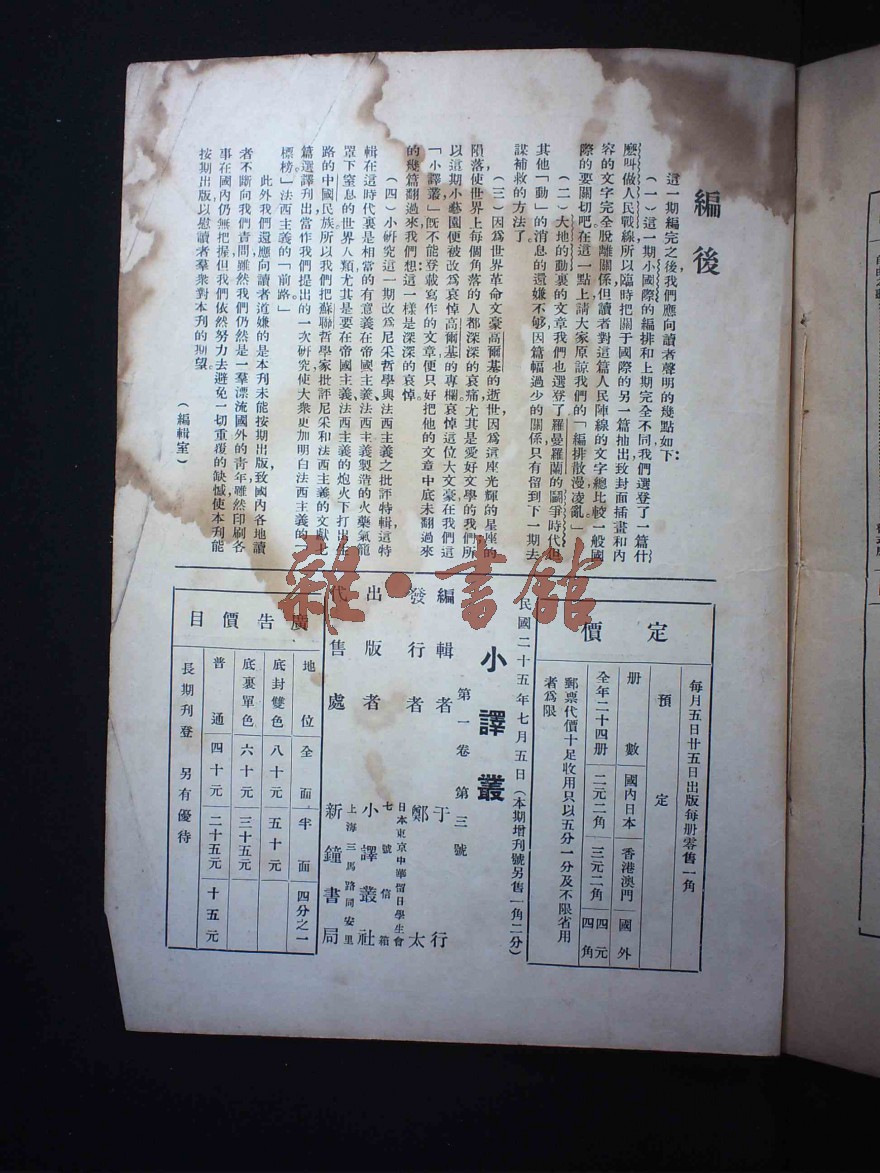 編後
這一期編完之後，我們應向讀者聲明的幾點如下：
（一）這一期小國際的編排和上期完全不同，我們選登了一篇什
麼叫做人民戰線所以臨時把關于國際的另一篇抽出致封面插畫和內
容的文字完全脫離關係但讀者對這篇人民陣線的文字總比較一般國
際的要關切吧在這一點上請大家原諒我們的「編排散漫凌亂」
（二）大地的動裏的文章我們也選登了羅曼羅蘭的鬪爭時代但
其他「動」的消息的還嫌不够因篇幅過少的關係只有留到下一期去
謀補救的方法了。
（三）因爲世界革命文豪高爾基的逝世，因爲這座光輝的星座的
隕落使世界上每個角落的人都深深的哀痛尤其是愛好文學的我們所
以這期小藝園便被改爲哀悼高爾基的專欄哀悼這位大文豪在我們這
「小譯叢」旣不能登載寫作的文章便只好把他的文章中底未翻過來
的幾篇翻過來我們想這一樣是深深的哀悼。
（四）小研究這一期改爲尼采哲學與法西主義之批評特輯這特
輯在這時代裏是相當的有意義在帝國主義、法西主義製造的火藥氣籠
罩下窒息的世界人類尤其是要在帝國主義法西主義的炮火下打出生
路的中國民族所以我們把蘇聯哲學家批評尼采和法西主義的文獻七
篇選譯列出當作我們提出的一次硏究使大衆更加明白法西主義的「
標榜」法西主義的「前路」。
此外我們還應向讀者道嫌的是本刊未能按期出版，致國內各地讀
者不斷向我們責問雖然我們仍然是一羣漂流國外的青年雖然印刷各
事在國內仍無把握但我們依然努力去避免一切重覆的缺憾使本刊能
按期出版以慰讀者羣衆對本刊的期望。
（編輯室）
定價
每月五日廿五日出版每册零售一角
預定
册數 國內日本 香港澳門 國外
全年二十四册 二元二角 三元二角 四元四角
郵票代價十足收用只以五分一分及不限省用
者爲限
民國二十五年七月五日（本期增刊號另售一角二分）
小譯叢
第一卷第三號
編輯者 于行
發行者 鄭太
日本東京中華留日學生會
七號信箱
出版者 小譯叢社
上海三馬路同安里
代售處 新鐘書局
廣告價目
地位 全面 半面 四分之一
底封雙色 八十元 五十元
底裏單色 六十元 三十五元
普通 四十元 二十五元 十五元
長期刊登 另有優待
雜·書館